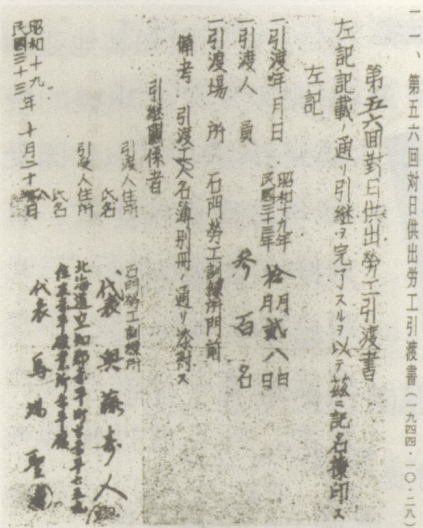 一一、第五六回対日供出労工引渡書（一九四四・一〇・二八）
第五六回對日供出勞工引渡書
左記記載ノ通リ引継ヲ完了スルヲ以テ茲ニ記名捺印ス
左記
一引渡年月日 昭和十九年 民國三十三年 拾月貳八日
一引渡人員 參百名
一引渡場所 石門勞工訓練所門前
備考 引渡工人名簿別冊ノ通リ添附ス
引継關係者
引渡人住所 石門勞工訓練所
氏名 代表
引受人住所 北海道空知郡赤平町
氏名 代表
昭和十九年
民國三十三年 十月二十日